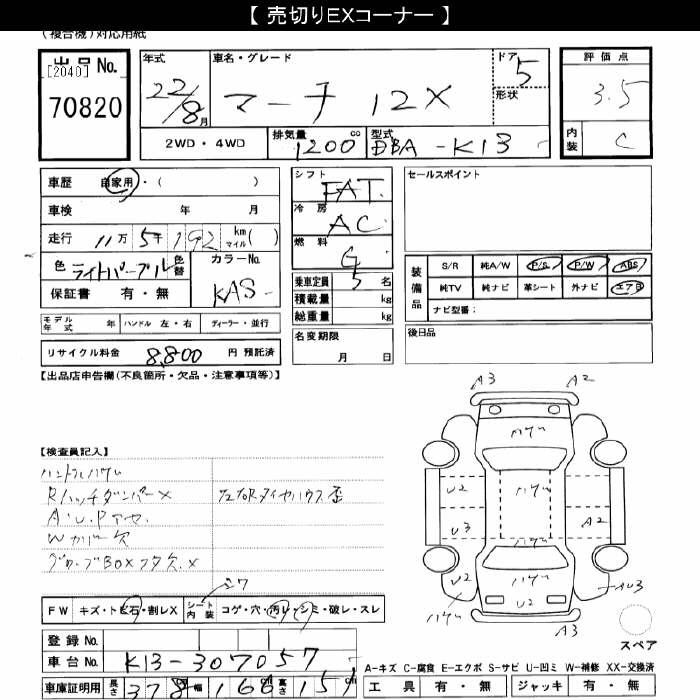 【 売切りEXコーナー 】
(複合機)対応用紙
出品 No.
[2040]
70820
年式 22/8月
車名・グレード マーチ 12X
ドア 5
形状
評価点 3.5
内装 C
2WD・4WD
排気量 1200 cc
型式 DBA-K13
車歴 自家用・( )
車検 年 月
走行 11万5千192 km マイル( )
色 ライトパープル 色替
カラーNo. KAS
保証書 有・無
シフト FAT.
冷房 AC
燃料 G
乗車定員 5 名
積載量 kg
総重量 kg
セールスポイント
装備品 S/R 純A/W P/S P/W ABS
純TV 純ナビ 革シート 外ナビ エアB
ナビ型番:
モデル年式 年 ハンドル 左・右 ディーラー・並行
名変期限
月 日
後日品
リサイクル料金 8,800 円 預託済
【出品店申告欄(不良箇所・欠品・注意事項等)】
A3 A2
ハゲム
【検査員記入】
ハンドルハゲム
Rハッチダンパー×
A・U.Pアセ.
Wカバー欠
グローブBOXフタ欠.×
U2 ハゲム
U3 A2
ハゲム
U2 U2 U2 AU3
ハゲム
A3
シワ
FW キズ・トビ石・割レX シート内装 コゲ・穴・汚レ・シミ・破レ・スレ
スペア
登録 No.
車台 No. K13-307057
車庫証明用 長さ 378 幅 166 cm 高さ 151 cm
A-キズ C-腐食 E-エクボ S-サビ U-凹ミ W-補修 XX-交換済
工具 有・無 ジャッキ 有・無